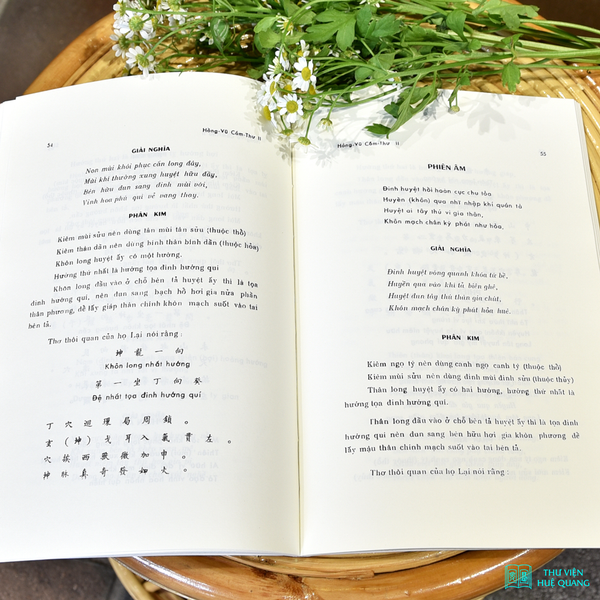 54
Hồng-Vũ Cấm-Thư II
GIẢI NGHĨA
Non mùi khôi phục cần long đây,
Mùi khí thường xung huyệt hữu đây,
Bên hữu đun sang đỉnh mùi vời,
Vinh hoa phú qui vẻ vang thay.
PHÂN KIM
Kiêm mùi sửu nên dùng tân mùi tân sửu (thuộc thổ)
Kiêm thân dần nên dùng bính thân bính dần (thuộc hỏa)
Khôn long huyệt ấy có một hướng.
Hướng thứ nhất là hướng tọa đinh hướng quí
Khôn long đầu vào ở chỗ bên tả huyệt ấy thì là tọa
đinh hướng quí, nên đun sang bạch hồ hơi gia nửa phân
thân phương, để lấy giáp thân chính khôn mạch suốt vào tai
bên tả.
Thơ thôi quan của họ Lại nói rằng:
坤 龍 一 向
Khôn long nhất hướng
第 一 坐 丁 向 癸
Đệ nhất tọa đinh hướng quí
丁 穴 廻 環 局 周 鎖 。
亥 (坤) 戈 耳 入 氣 貫 左 。
穴 挨 西 獸 微 加 申 。
坤 脉 真 奇 發 如 火 。
Hồng-Vũ Cấm-Thư II
55
PHIÊN ÂM
Đinh huyệt hồi hoàn cục chu tỏa.
Huyền (khôn) qua nhĩ nhập khí quán tả
Huyệt ai tây thú vi gia thân,
Khôn mạch chân kỳ phát như hỏa,
GIẢI NGHĨA
Đinh huyệt vòng quanh khóa tứ bề,
Huyền qua vào khí tả biên ghê,
Huyệt đun tây thú thân gia chút,
Khôn mạch chân kỳ phát hỏa huê.
PHÂN KIM
Kiêm ngọ tý nên dùng canh ngọ canh tý (thuộc thổ)
Kiêm mùi sửu nên dùng đinh mùi đinh sửu (thuộc thủy)
Thân long huyệt ấy có hai hướng, hướng thứ nhất là
hướng tọa đinh hướng quí.
Thân long đầu vào ở chỗ bên tả huyệt ấy thì là tọa đinh
hướng quí nên đun sang bên hữu hơi gia khôn phương để
lấy mậu thân chính mạch suốt vào tai bên tả.
Thơ thôi quan của họ Lại nói rằng:
THƯ VIỆN
HUỆ QUANG